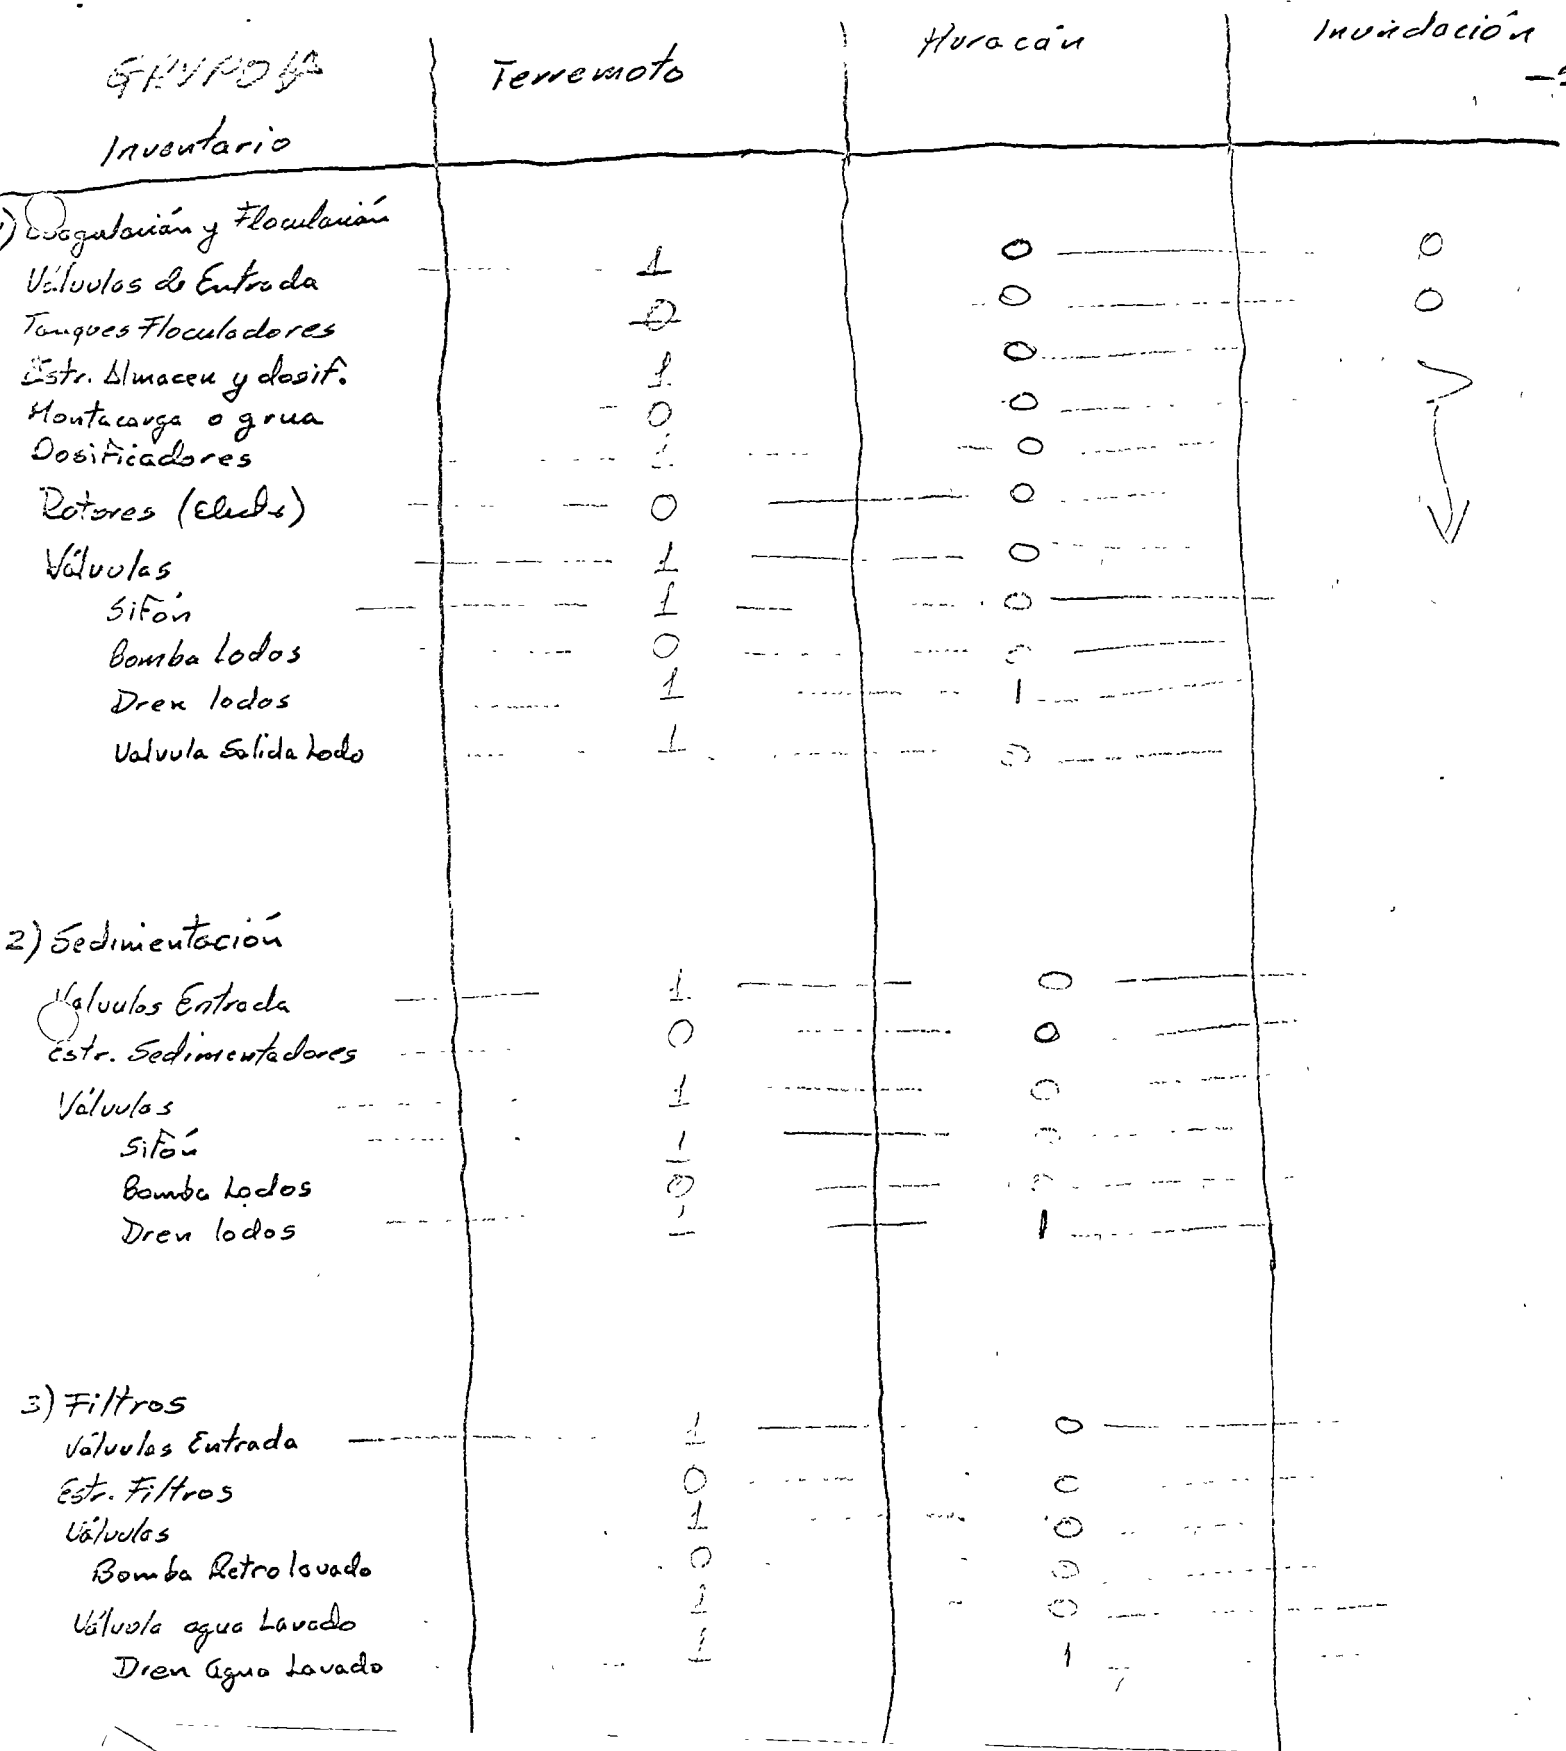 Terremoto Huracán Inundación
Inventario
1) Coagulación y Floculación
Válvulas de Entrada 1 0 0
Tanques Floculadores 0 0 0
Estr. Almacen y dosif. 1 0
Montacarga o grua 0 0
Dosificadores 0
Rotores 0 0
Válvulas 1 0
Sifón 1 0
Bomba Lodos 0 0
Dren lodos 1 1
Valvula Salida Lodo 1 0
2) Sedimentación
Valvulas Entrada 1 0
Estr. Sedimentadores 0 0
Válvulas 1 0
Sifón 1 0
Bomba Lodos 0 0
Dren lodos 1 1
3) Filtros
Válvulas Entrada 1 0
Estr. Filtros 0 0
Válvulas 1 0
Bomba Retrolavado 0 0
Válvula agua Lavado 1 0
Dren Agua Lavado 1 1